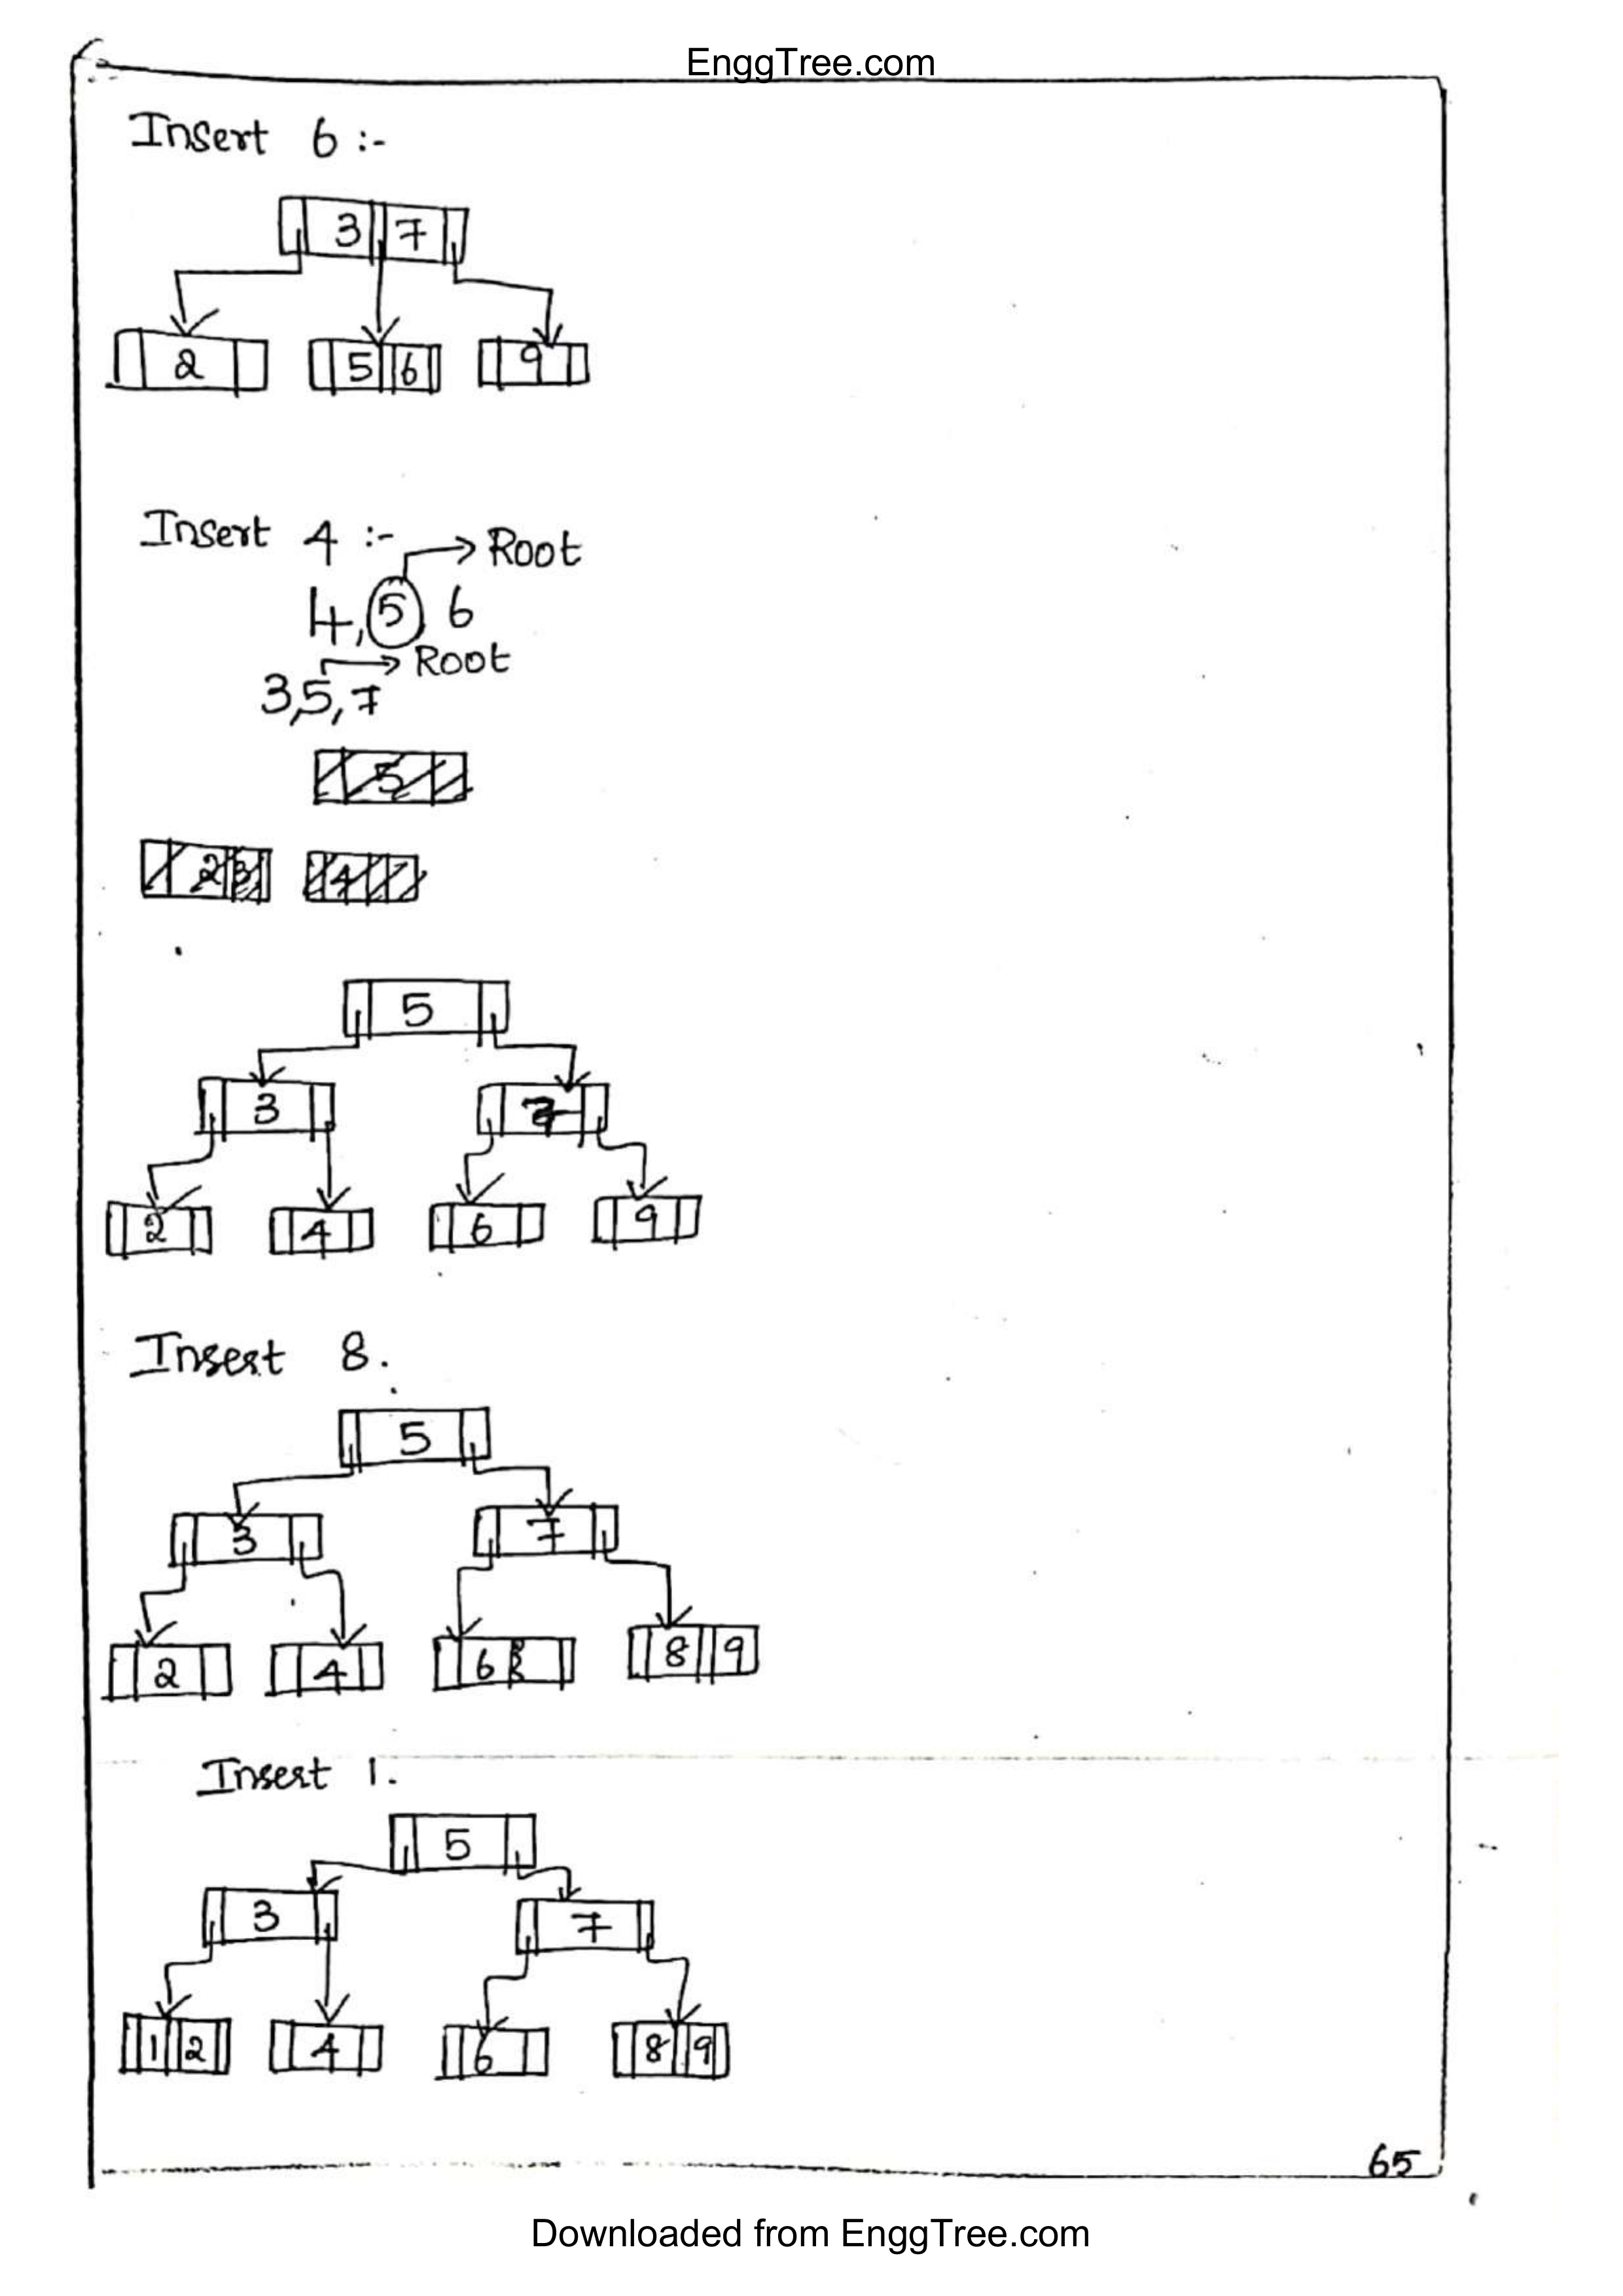 EnggTree.com
Insert 6 :-
3 7
2 5 6 9
Insert 4 :-
→ Root
4, 5 6
→ Root
3, 5, 7
5
2 3 4
5
3 7
2 4 6 9
Insert 8.
5
3 7
2 4 6 8 9
Insert 1.
5
3 7
1 2 4 6 8 9
65
Downloaded from EnggTree.com